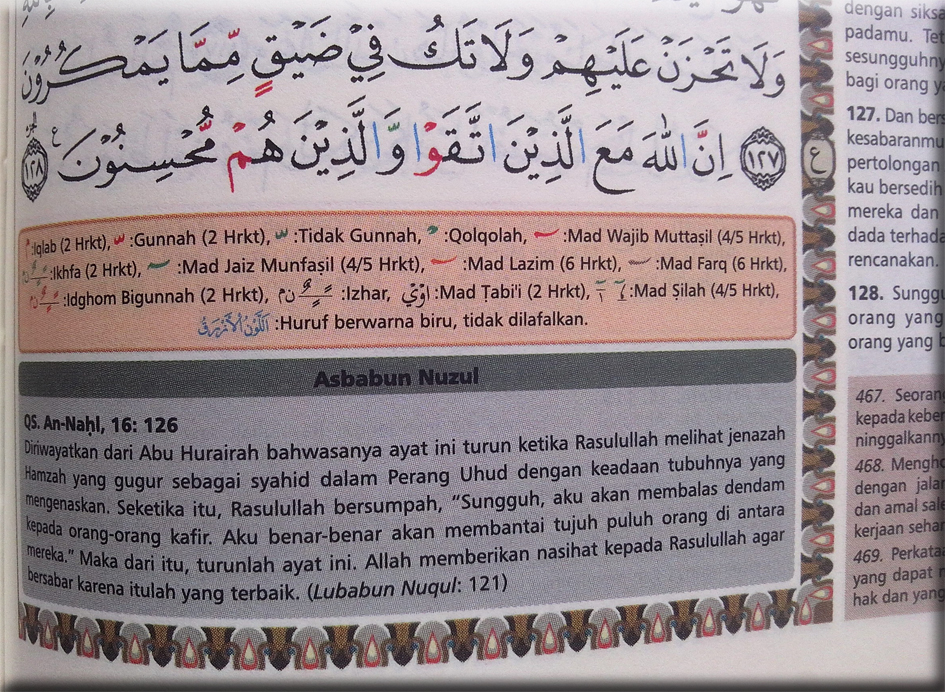 وَلَا تَحْزَنْ عَلَيْهِمْ وَلَا تَكُ فِيْ ضَيْقٍ مِّمَّا يَمْكُرُوْنَ
١٢٧ اِنَّ اللّٰهَ مَعَ الَّذِيْنَ اتَّقَوْا وَّالَّذِيْنَ هُمْ مُّحْسِنُوْنَ ١٢٨
ع
:Iqlab (2 Hrkt), :Gunnah (2 Hrkt), :Tidak Gunnah, :Qolqolah, :Mad Wajib Muttaṣil (4/5 Hrkt),
:Ikhfa (2 Hrkt), :Mad Jaiz Munfaṣil (4/5 Hrkt), :Mad Lazim (6 Hrkt), :Mad Farq (6 Hrkt),
:Idghom Bigunnah (2 Hrkt), :Izhar, :Mad Ṭabi'i (2 Hrkt), :Mad Ṣilah (4/5 Hrkt),
اَللَّوْنُ الْاَزْرَقُ :Huruf berwarna biru, tidak dilafalkan.
Asbabun Nuzul
QS. An-Naḥl, 16: 126
Diriwayatkan dari Abu Hurairah bahwasanya ayat ini turun ketika Rasulullah melihat jenazah
Hamzah yang gugur sebagai syahid dalam Perang Uhud dengan keadaan tubuhnya yang
mengenaskan. Seketika itu, Rasulullah bersumpah, “Sungguh, aku akan membalas dendam
kepada orang-orang kafir. Aku benar-benar akan membantai tujuh puluh orang di antara
mereka.” Maka dari itu, turunlah ayat ini. Allah memberikan nasihat kepada Rasulullah agar
bersabar karena itulah yang terbaik. (Lubabun Nuqul: 121)
dengan siksa
padamu. Tet
sesungguhny
bagi orang y
127. Dan bers
kesabaranmu
pertolongan
kau bersedih
mereka dan
dada terhada
rencanakan.
128. Sunggu
orang yang
orang yang b
467. Seorang
kepada keber
ninggalkanny
468. Mengho
dengan jalan
dan amal sale
kerjaan sehar
469. Perkataa
yang dapat m
hak dan yang